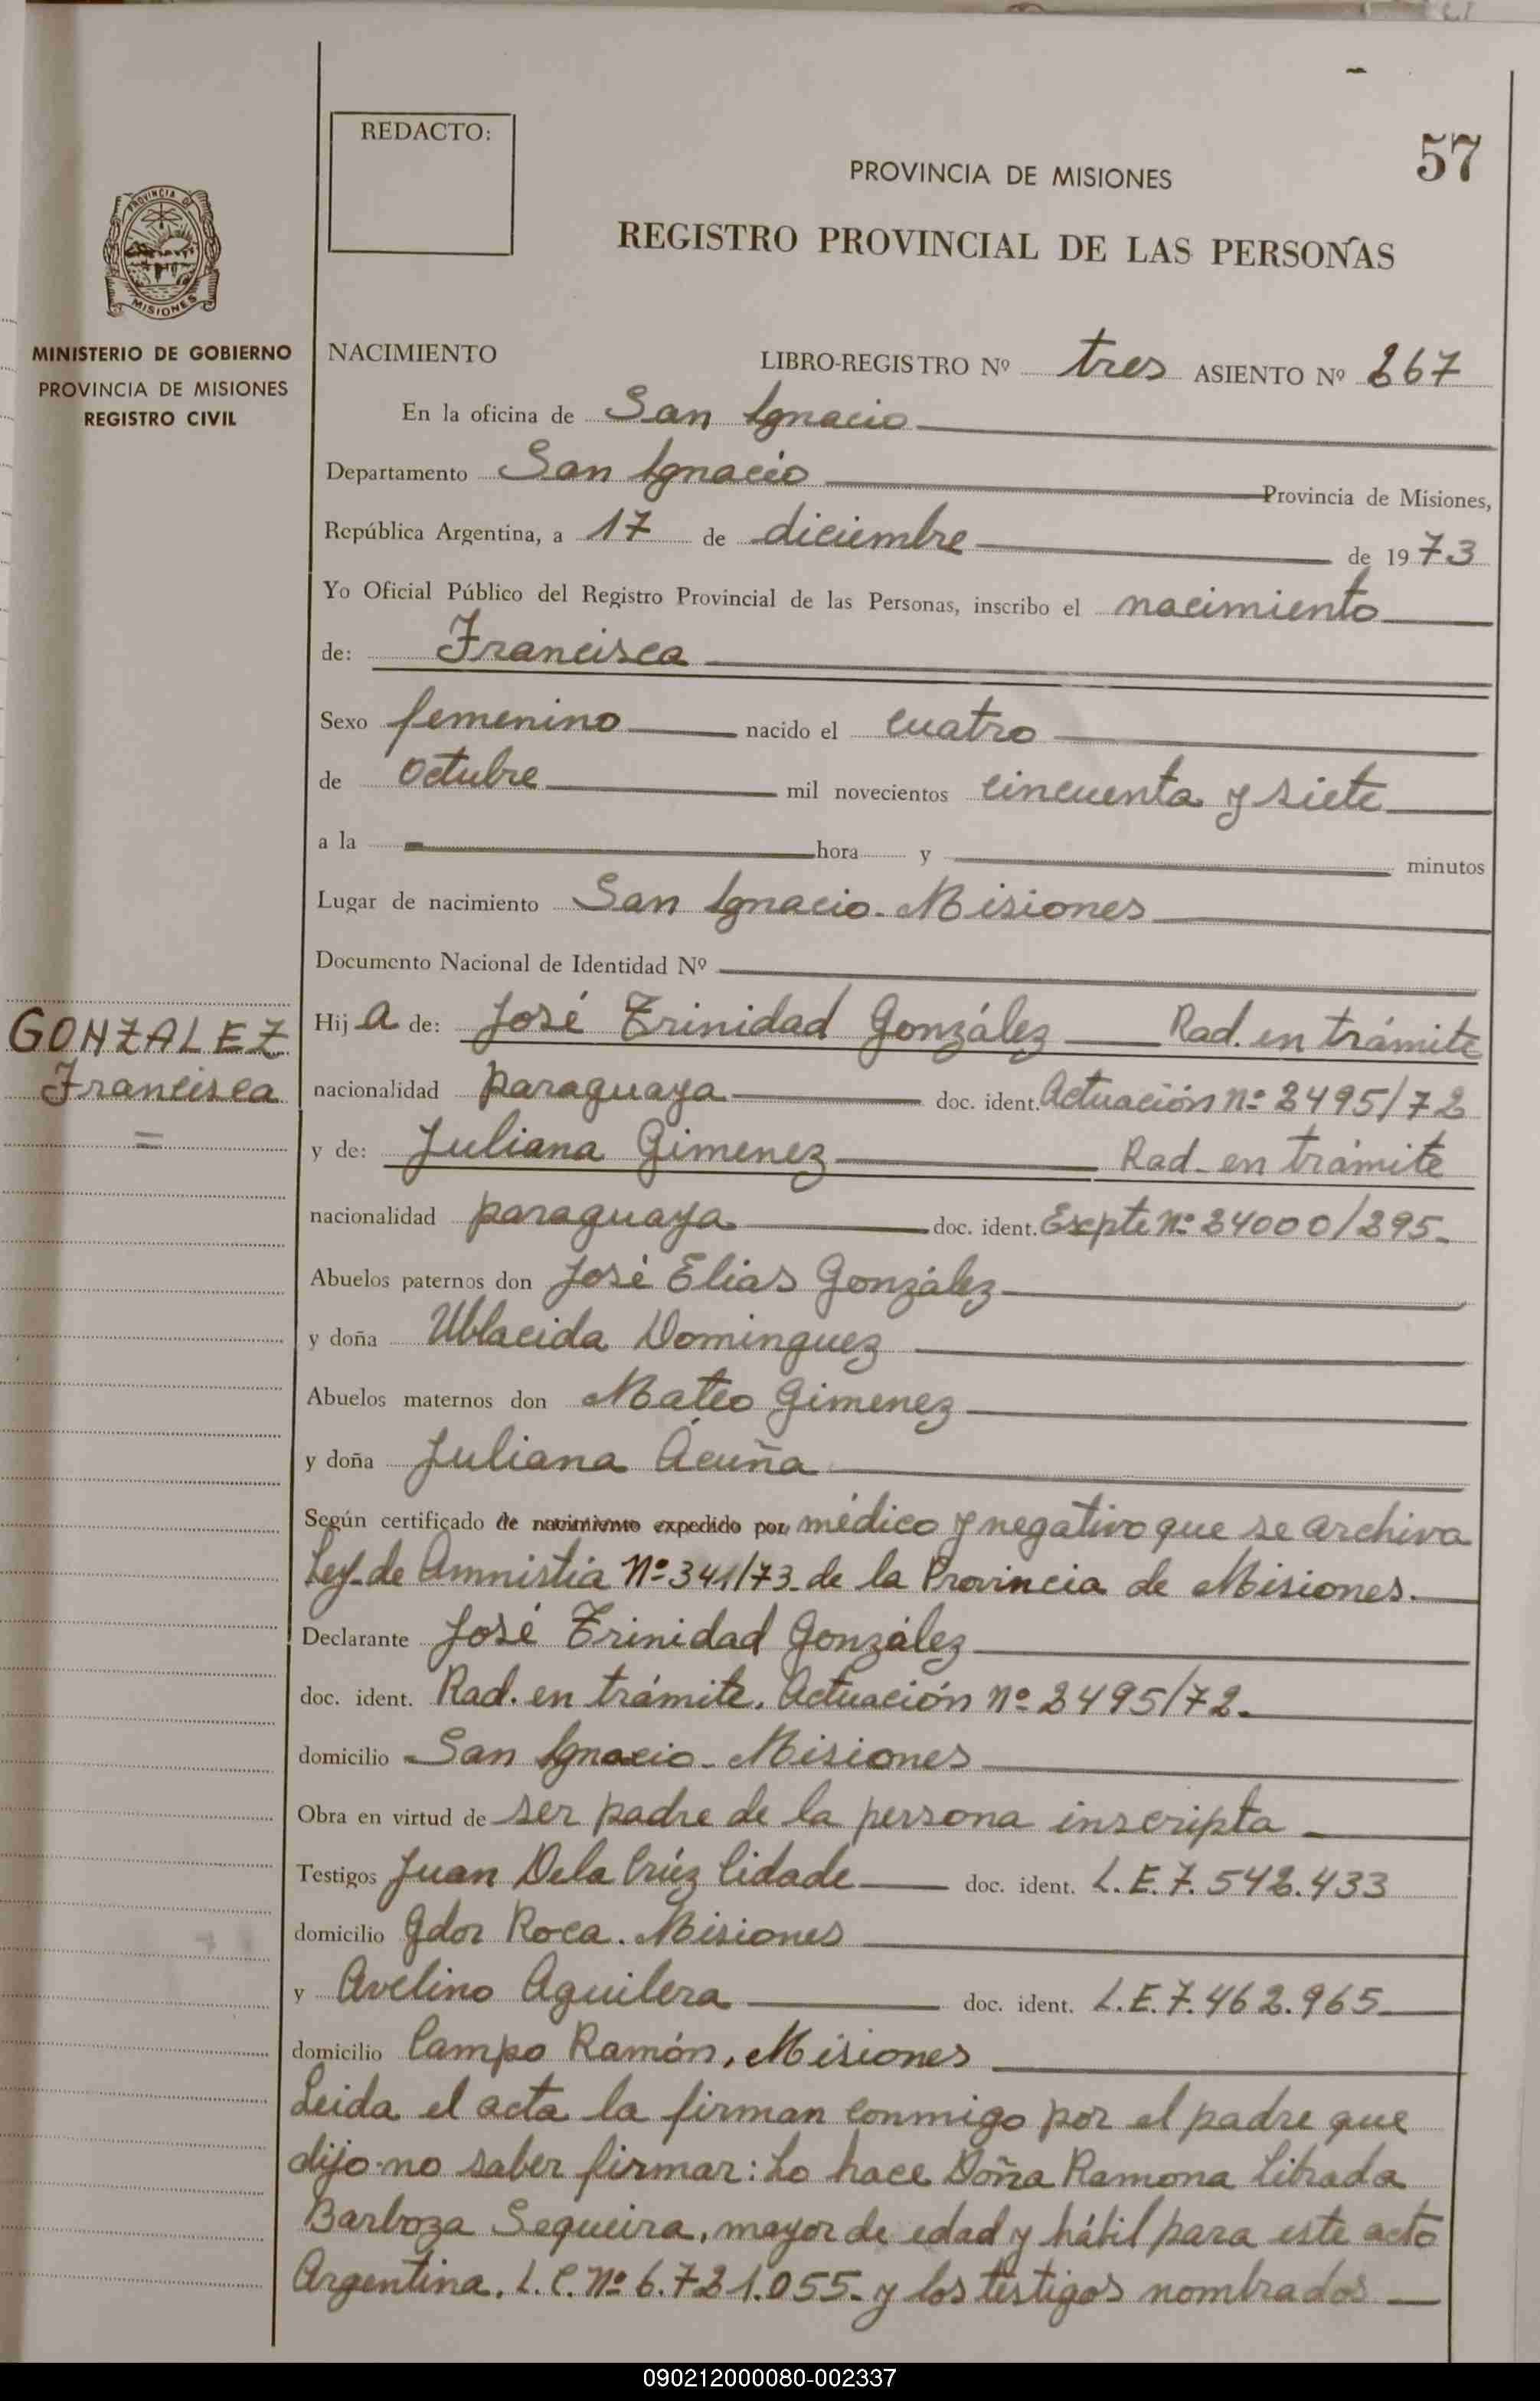 REDACTO:
57
PROVINCIA DE MISIONES
REGISTRO PROVINCIAL DE LAS PERSONAS
PROVINCIA DE
MISIONES
MINISTERIO DE GOBIERNO
PROVINCIA DE MISIONES
REGISTRO CIVIL
NACIMIENTO LIBRO-REGISTRO Nº tres ASIENTO Nº 267
En la oficina de San Ignacio
Departamento San Ignacio Provincia de Misiones,
República Argentina, a 17 de diciembre de 1973
Yo Oficial Público del Registro Provincial de las Personas, inscribo el nacimiento
de: Francisca
Sexo femenino nacido el cuatro
de octubre mil novecientos cincuenta y siete
a la hora y minutos
Lugar de nacimiento San Ignacio. Misiones
Documento Nacional de Identidad Nº
GONZALEZ
Francisca
Hija de: José Trinidad González Rad. en trámite
nacionalidad paraguaya doc. ident. Actuación nº 2495/72
y de: Juliana Gimenez Rad. en trámite
nacionalidad paraguaya doc. ident. Expte nº 24000/295.
Abuelos paternos don José Elias González
y doña Ublacida Dominguez
Abuelos maternos don Mateo Gimenez
y doña Juliana Acuña
Según certificado de nacimiento expedido por médico y negativo que se archiva
Ley de Amnistia Nº 341/73. de la Provincia de Misiones.
Declarante José Trinidad González
doc. ident. Rad. en trámite. Actuación nº 2495/72.
domicilio San Ignacio - Misiones
Obra en virtud de ser padre de la persona inscripta
Testigos Juan Dela Crúz Cidade doc. ident. L.E. 7.542.433
domicilio Gdor Roca. Misiones
y Avelino Aguilera doc. ident. L.E. 7.462.965
domicilio Campo Ramón, Misiones
Leida el acta la firman conmigo por el padre que
dijo no saber firmar: Lo hace Doña Ramona Librada
Barboza Sequeira, mayor de edad y hábil para este acto
Argentina. L.C. nº 6.721.055. y los testigos nombrados
090212000080-002337